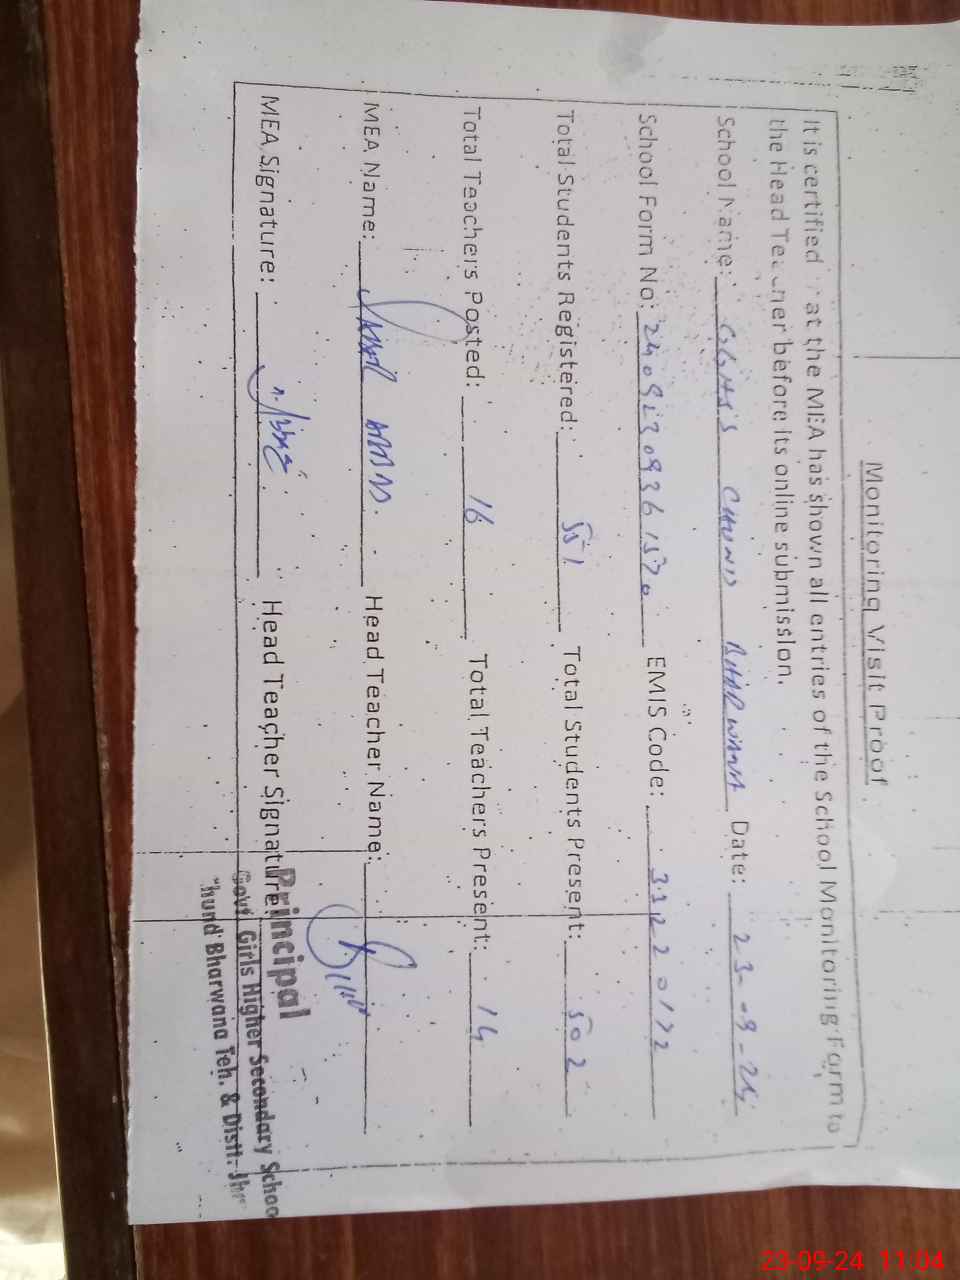 Monitoring Visit Proof
It is certified that the MEA has shown all entries of the School Monitoring Form to
the Head Teacher before its online submission.
School Name: GGHSS CHUND BHARWANA Date: 23-09-24
School Form No: EMIS Code: 33220172
Total Students Registered: 551 Total Students Present: 502
Total Teachers Posted: 16 Total Teachers Present: 14
MEA Name: Head Teacher Name:
MEA Signature: Head Teacher Signature
Principal
Govt. Girls Higher Secondary School
hund Bharwana Teh. & Distt. Jh
23-09-24 11:04